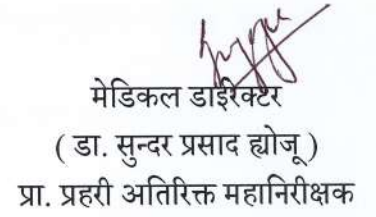 मेडिकल डाईरेक्टर
( डा. सुन्दर प्रसाद ह्योजू )
प्रा. प्रहरी अतिरिक्त महानिरीक्षक